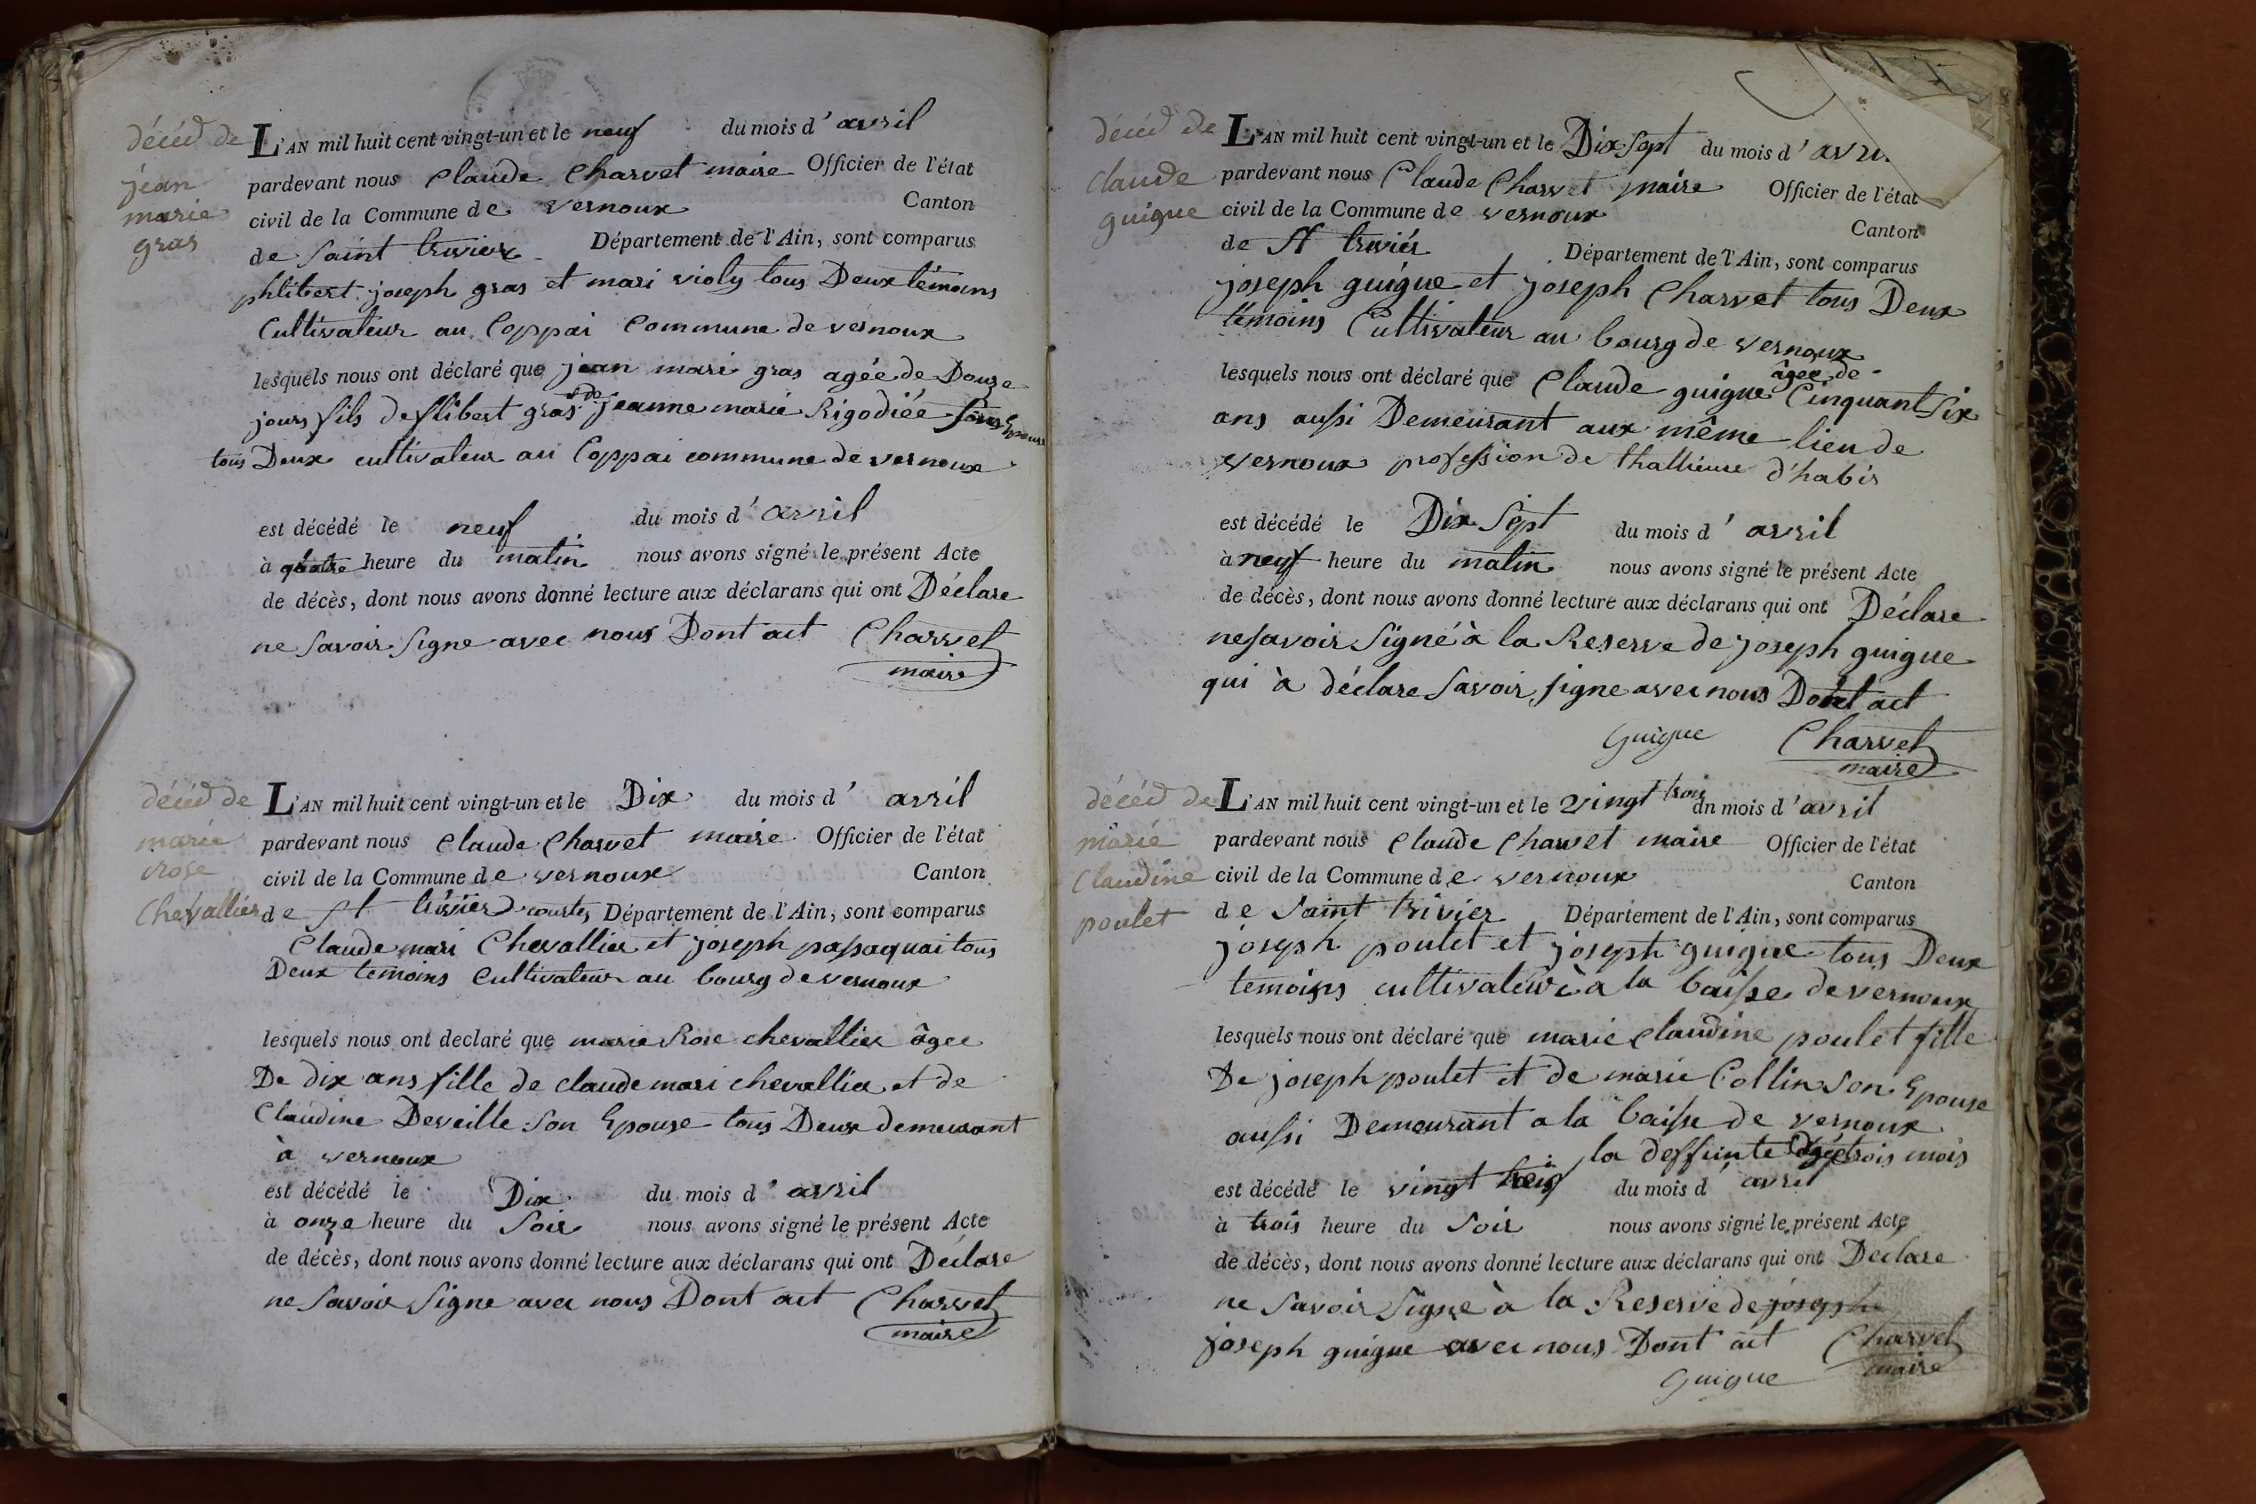 décéd de
jean
marie
gras
L'AN mil huit cent vingt-un et le neuf du mois d'avril
pardevant nous Claude Charvet maire Officier de l'état
civil de la Commune de vernoux Canton
de Saint trivier Département de l'Ain, sont comparus
philibert joseph gras et mari violy tous Deux témoins
Cultivateur au Coppai Commune de vernoux
lesquels nous ont déclaré que jean mari gras agée de Douze
jours fils de flibert gras & de jeanne marie Rigodiée son Epouse
tous Deux cultivateur au Coppai commune de vernoux
est décédé le neuf du mois d'avril
à quatre heure du matin nous avons signé le présent Acte
de décès, dont nous avons donné lecture aux déclarans qui ont Déclare
ne Savoir Signe avec nous Dont act Charvet
maire
décéd de
marie
rose
Chevallier
L'AN mil huit cent vingt-un et le Dix du mois d'avril
pardevant nous Claude Charvet maire Officier de l'état
civil de la Commune de vernoux Canton
de St trivier courtes Département de l'Ain, sont comparus
Claude mari Chevallier et joseph passaquai tous
Deux temoins Cultivateur au bourg de vernoux
lesquels nous ont declaré que marie Rose chevallier âgee
De dix ans fille de claude mari chevallier et de
Claudine Deveille Son Epouse tous Deux demeurant
à vernoux
est décédé le Dix du mois d'avril
à onze heure du Soir nous avons signé le présent Acte
de décès, dont nous avons donné lecture aux déclarans qui ont Déclare
ne Savoir Signe avec nous Dont act Charvet
maire
décéd de
claude
guigue
L'AN mil huit cent vingt-un et le Dix Sept du mois d'avri
pardevant nous Claude Charvet maire Officier de l'état
civil de la Commune de vernoux Canton
de St trivier Département de l'Ain, sont comparus
joseph guigue et joseph Charvet tous Deux
témoins Cultivateur au bourg de vernoux
lesquels nous ont déclaré que Claude guigue âgee de Cinquant Six
ans aussi Demeurant aux même lieu de
vernoux profession de thallieure d'habis
est décédé le Dix Sept du mois d'avril
à neuf heure du matin nous avons signé le présent Acte
de décès, dont nous avons donné lecture aux déclarans qui ont Déclare
ne savoir Signé à la Reserve de joseph guigue
qui à déclare Savoir signe avec nous Dont act
Guigue Charvet
maire
décéd de
marie
Claudine
poulet
L'AN mil huit cent vingt-un et le vingt trois du mois d'avril
pardevant nous Claude Charvet maire Officier de l'état
civil de la Commune de vernoux Canton
de Saint trivier Département de l'Ain, sont comparus
joseph poulet et joseph guigue tous Deux
temoins cultivateur à la baisse de vernoux
lesquels nous ont déclaré que marie Claudine poulet fille
De joseph poulet et de marie Collin Son Epouse
aussi Demeurant a la baisse de vernoux
la deffunte agée trois mois
est décédé le vingt du mois d'avril
à trois heure du Soir nous avons signé le présent Acte
de décès, dont nous avons donné lecture aux déclarans qui ont Déclare
ne Savoir Signe à la Reserve de joseph
joseph guigue avec nous Dont act Charvet
Guigue maire